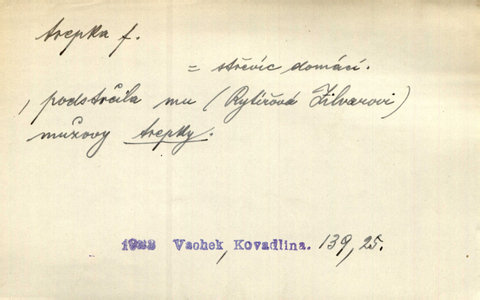 trepka f.
= střevíc domácí.
, podstrčila mu (Rytířová Zilvarovi)
mužovy trepky.
1922 Vachek, Kovadlina. 139, 25.